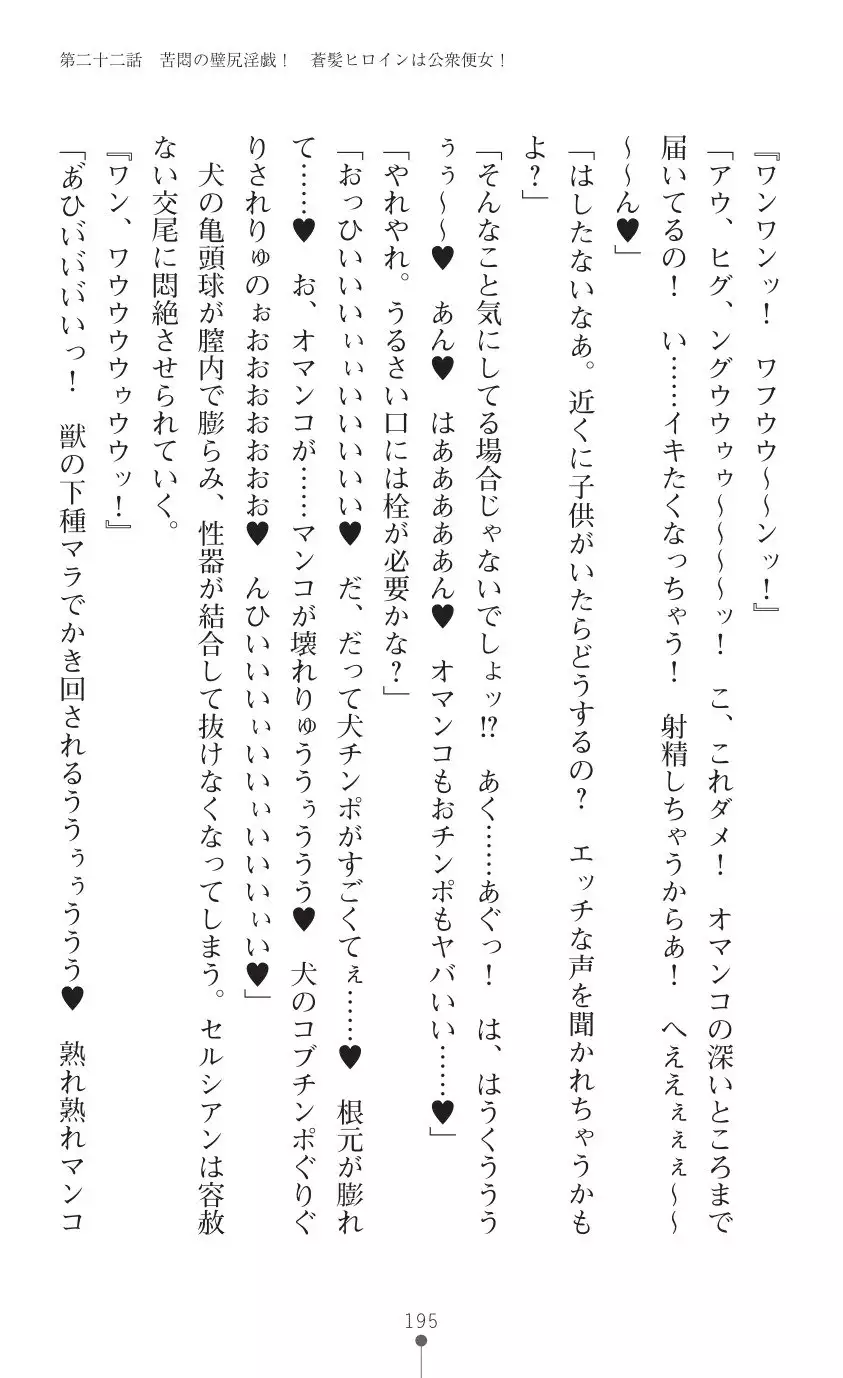 第二十二話　苦悶の壁尻淫戯！　蒼髪ヒロインは公衆便女！
『ワンワンッ！　ワフウウ～～ンッ！』
「アウ、ヒグ、ングウウゥゥ～～～～ッ！　こ、これダメ！　オマンコの深いところまで
届いてるの！　い……イキたくなっちゃう！　射精しちゃうからぁ！　へええぇぇぇ～～
～～ん♥」
「はしたないなぁ。近くに子供がいたらどうするの？　エッチな声を聞かれちゃうかも
よ？」
「そんなこと気にしてる場合じゃないでしょッ!?　あく……あぐっ！　は、はうくううう
ぅぅ～～♥　あん♥　はああああああん♥　オマンコもおチンポもヤバいい……♥」
「やれやれ。うるさい口には栓が必要かな？」
「おっひいいいぃぃいいいいい♥　だ、だって犬チンポがすごくてぇ……♥　根元が膨れ
て……♥　お、オマンコが……マンコが壊れりゅううぅううう♥　犬のコブチンポぐりぐ
りされりゅのぉおおおおおおお♥　んひいいいぃいいぃいいいぃい♥」
　犬の亀頭球が膣内で膨らみ、性器が結合して抜けなくなってしまう。セルシアンは容赦
ない交尾に悶絶させられていく。
『ワン、ワウウウウゥウウッ！』
「あ゛ひい゛い゛い゛いっ！　獣の下種マラでかき回されるううぅぅううう♥　熟れ熟れマンコ
195